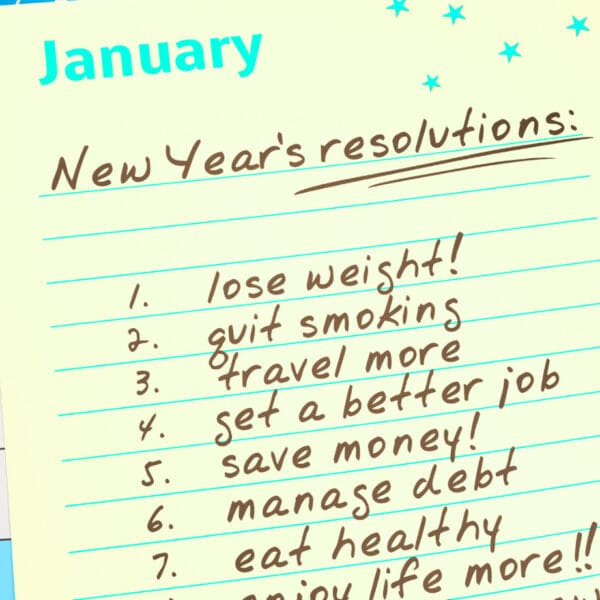 January
New Year's resolutions:
1. lose weight!
2. quit smoking
3. travel more
4. get a better job
5. save money!
6. manage debt
7. eat healthy
enjoy life more!!